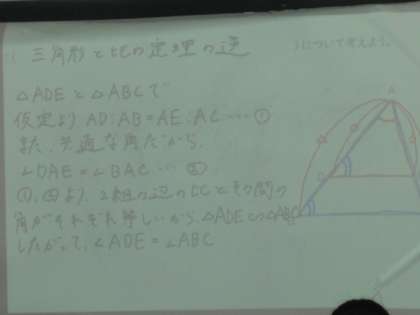 三角形と比の定理の逆
について考えよう。
△ADEと△ABCで
仮定より AD:AB=AE:AC…①
また、共通な角だから、
∠DAE=∠BAC…②
①,②より、2組の辺の比とその間の
角がそれぞれ等しいから、△ADE∽△ABC
したがって、∠ADE=∠ABC